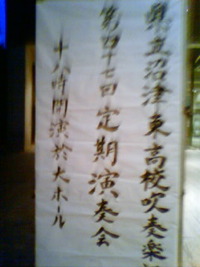 県立沼津東高校吹奏楽
第四十七回定期演奏会
十八時開演於大ホール